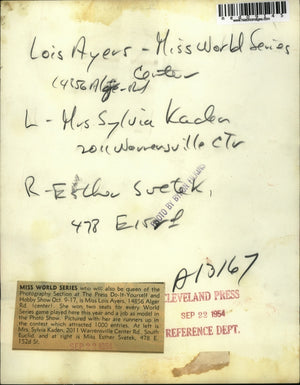 Lois Ayers - Miss World Series
Center
14856 Alger Rd
L - Mrs Sylvia Kaden
2011 Warrensville Ctr
R - Esther Svetek,
478 E 152 St
PHOTO BY
A13167
CLEVELAND PRESS
SEP 22 1954
REFERENCE DEPT.
MISS WORLD SERIES who will also be queen of the
Photography Section at The Press Do-It-Yourself and
Hobby Show Oct. 9-17, is Miss Lois Ayers, 14856 Alger
Rd. (center). She won two seats for every World
Series game played here this year and a job as model in
the Photo Show. Pictured with her are runners up in
the contest which attracted 1000 entries. At left is
Mrs. Sylvia Kaden, 2011 Warrensville Center Rd., South
Euclid, and at right is Miss Esther Svetek, 478 E.
152d St.
SEP 22 1954